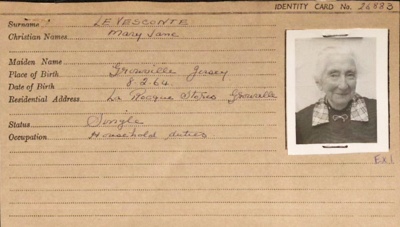 IDENTITY CARD No. 26883
Surname LEVESCONTE
Christian Names Mary Jane
Maiden Name
Place of Birth Grouville Jersey
Date of Birth 8-2-64.
Residential Address La Rocque Stores Grouville
Status Single
Occupation Household duties